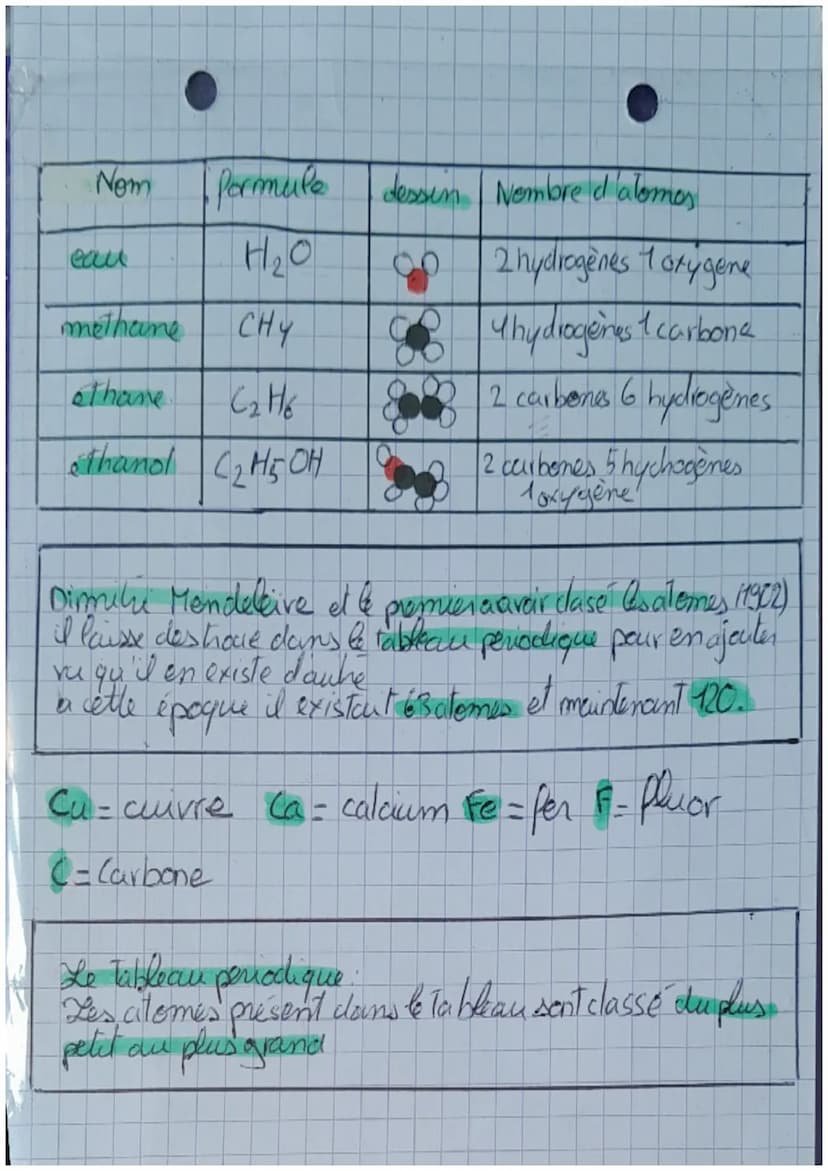 Nom formule dessin Nombre d'atomes
eau H2O 2 hydrogènes 1 oxygène
méthane CH4 4 hydrogènes 1 carbone
éthane C2H6 2 carbones 6 hydrogènes
éthanol C2H5OH 2 carbones 5 hydrogènes
1 oxygène
Dimitri Mendeleïve et le premier a avoir classé les atomes (1902)
il laisse des troue dans le tableau périodique pour en ajouter
vu qu'il en existe d'autre
a cette époque il existait 63 atomes et maintenant 120.
Cu = cuivre Ca = calcium Fe = fer F = fluor
C = Carbone
Le tableau périodique :
Les atomes présent dans le tableau sont classé du plus
petit au plus grand